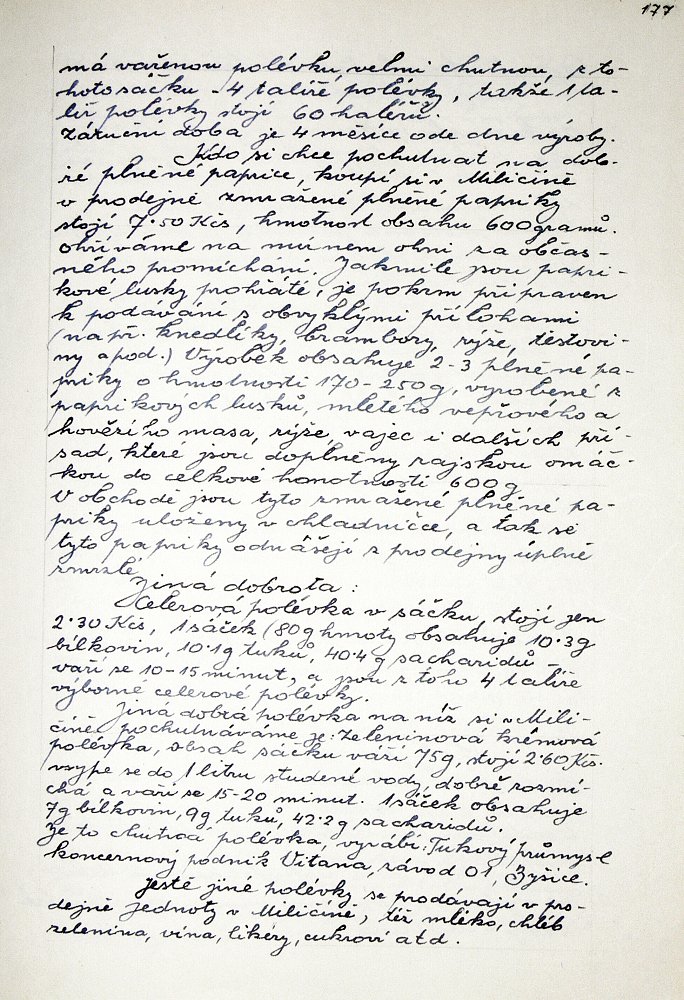 177
má vařenou polévku, velmi chutnou, z to-
hoto sáčku - 4 talíře polévky, takže 1 ta-
líř polévky stojí 60 haléřů.
Záruční doba je 4 měsíce ode dne výroby.
Kdo si chce pochutnat na dob-
ré plněné paprice, koupí si v Miličíně
v prodejně zmražené plněné papriky
stojí 7.50 Kčs, hmotnost obsahu 600 gramů.
Ohříváme na mírném ohni za občas-
ného promíchání. Jakmile jsou papri-
kové lusky prohřáté, je pokrm připraven
k podávání s obvyklými přílohami
(např. knedlíky, brambory, rýže, těstovi-
ny apod.) Výrobek obsahuje 2-3 plněné pa-
priky o hmotnosti 170-250g, vyrobené z
paprikových lusků, mletého vepřového a
hovězího masa, rýže, vajec i dalších pří-
sad, které jsou doplněny rajskou omáč-
kou do celkové hmotnosti 600 g
V obchodě jsou tyto zmražené plněné pa-
priky uloženy v chladnicce, a tak se
tyto papriky odnášejí z prodejny úplně
zmrzlé.
Jiná dobrota:
Celerová polévka v sáčku, stojí jen
2.30 Kčs, 1 sáček (80g hmoty obsahuje 10.3g
bílkovin, 10.1g tuků, 40.4g sacharidů -
vaří se 10-15 minut, a jsou z toho 4 talíře
výborné celerové polévky.
Jiná dobrá polévka na níž si v Mili-
číně pochutnáváme je: Zeleninová krémová
polévka, obsah sáčku váží 75g, stojí 2.60 Kčs.
vsype se do 1 litru studené vody, dobře rozmí-
chá a vaří se 15-20 minut. 1 sáček obsahuje
7g bílkovin, 9g tuků, 42.2g sacharidů.
Je to chutná polévka, vyrábí: Tukový průmysl
koncernový podnik Vitana, závod 01, Byšice.
Ještě jiné polévky se prodávají v pro-
dejně Jednoty v Miličíně, též mléko, chléb
zelenina, vína, likéry, cukroví atd.